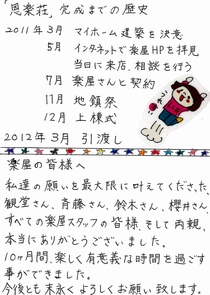 「恩楽荘」完成までの歴史
2011年3月 マイホーム建築を決意
5月 インタネットで楽屋HPを拝見
当日に来店、相談を行う
7月 楽屋さんと契約
11月 地鎮祭
12月 上棟式
2012年3月 引渡し
楽屋の皆様へ
私達の願いを最大限に叶えてくださった、
観堂さん、斉藤さん、鈴木さん、櫻井さん、
すべての楽屋スタッフの皆様、そして両親、
本当にありがとうございました。
10ヶ月間、楽しく有意義な時間を過ごす
事ができました。
今後とも末永くよろしくお願い致します。